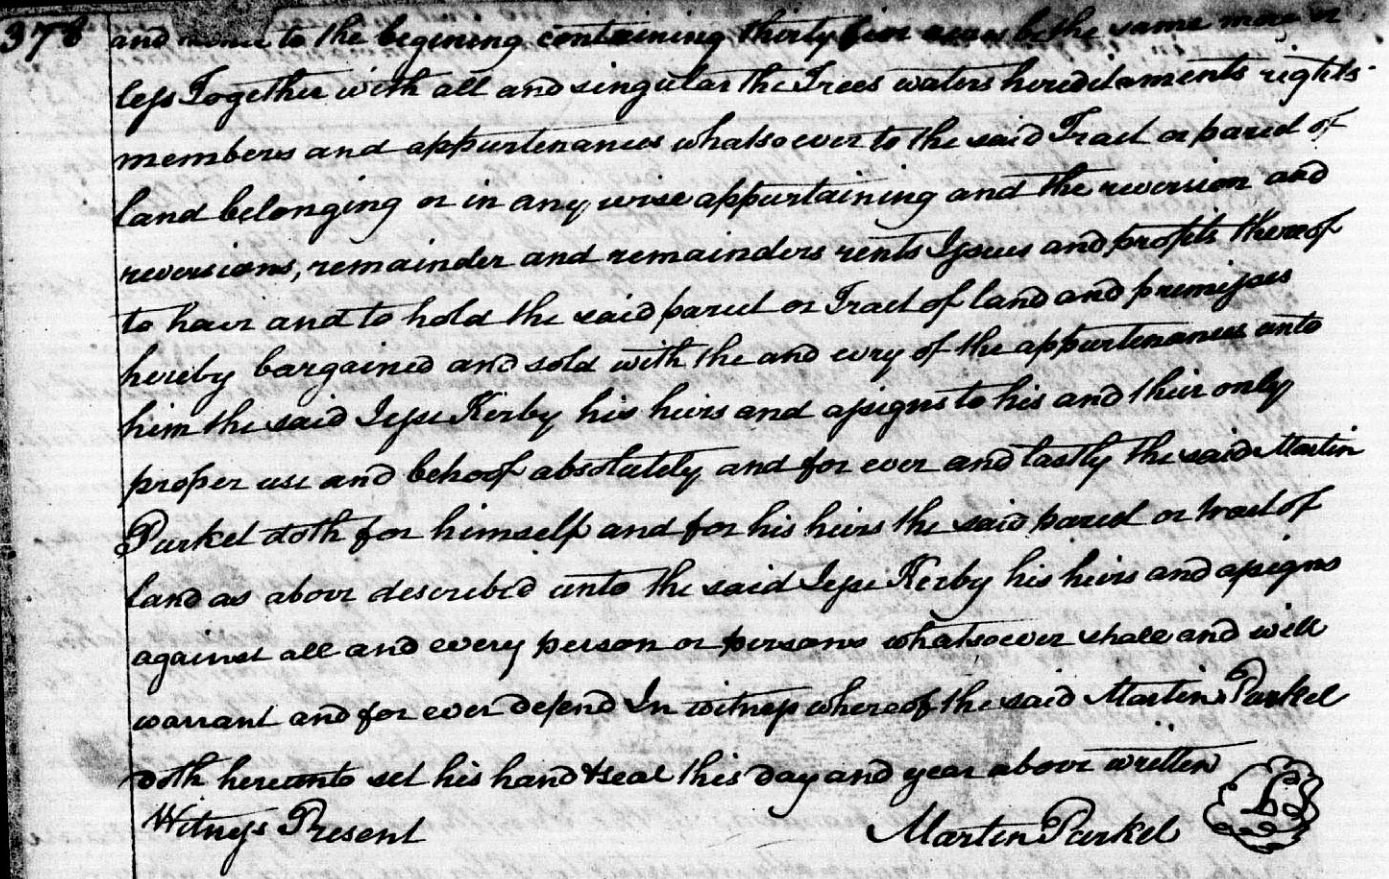 378 and to the begining containing thirty five acres be the same more or
less Together with all and singular the Trees waters hereditaments rights
members and appurtenances whatsoever to the said Tract or parcel of
land belonging or in any wise appurtaining and the reversion and
reversions, remainder and remainders rents Issues and profits thereof
to have and to hold the said parcel or Tract of land and premisses
hereby bargained and sold with the and evry of the appurtenances unto
him the said Jesse Kerby his heirs and assigns to his and their only
proper use and behoof absolutely and for ever and lastly the said Martin
Parkel doth for himself and for his heirs the said parcel or tract of
land as above described unto the said Jesse Kerby his heirs and assigns
against all and every person or persons whatsoever shall and will
warrant and for ever defend In witness whereof the said Martin Parkel
doth hereunto set his hand & seal this day and year above written
Witness Present Martin Parkel LS